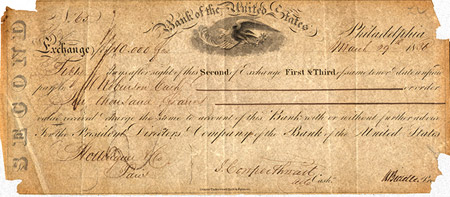 SECOND
Bank of the United States
Philadelphia
March 29
Exchange 10,000
days after sight of this Second of Exchange First & Third of same tenor & date unpaid
pay to Cash or order
Ten thousand francs
value received & charge the same to account of this Bank with or without further advice
For the President Directors & Company of the Bank of the United States
Hottinguer & Co
Paris
J. Cowperthwait
Cash.
N Biddle Pres